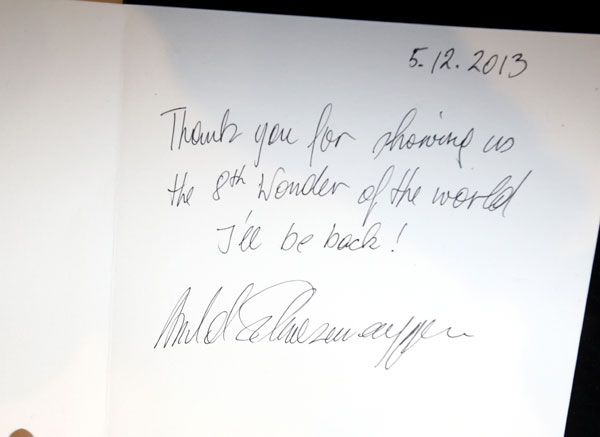 5.12.2013
Thank you for showing us
the 8th Wonder of the world
I'll be back!
Arnold Schwarzenegger